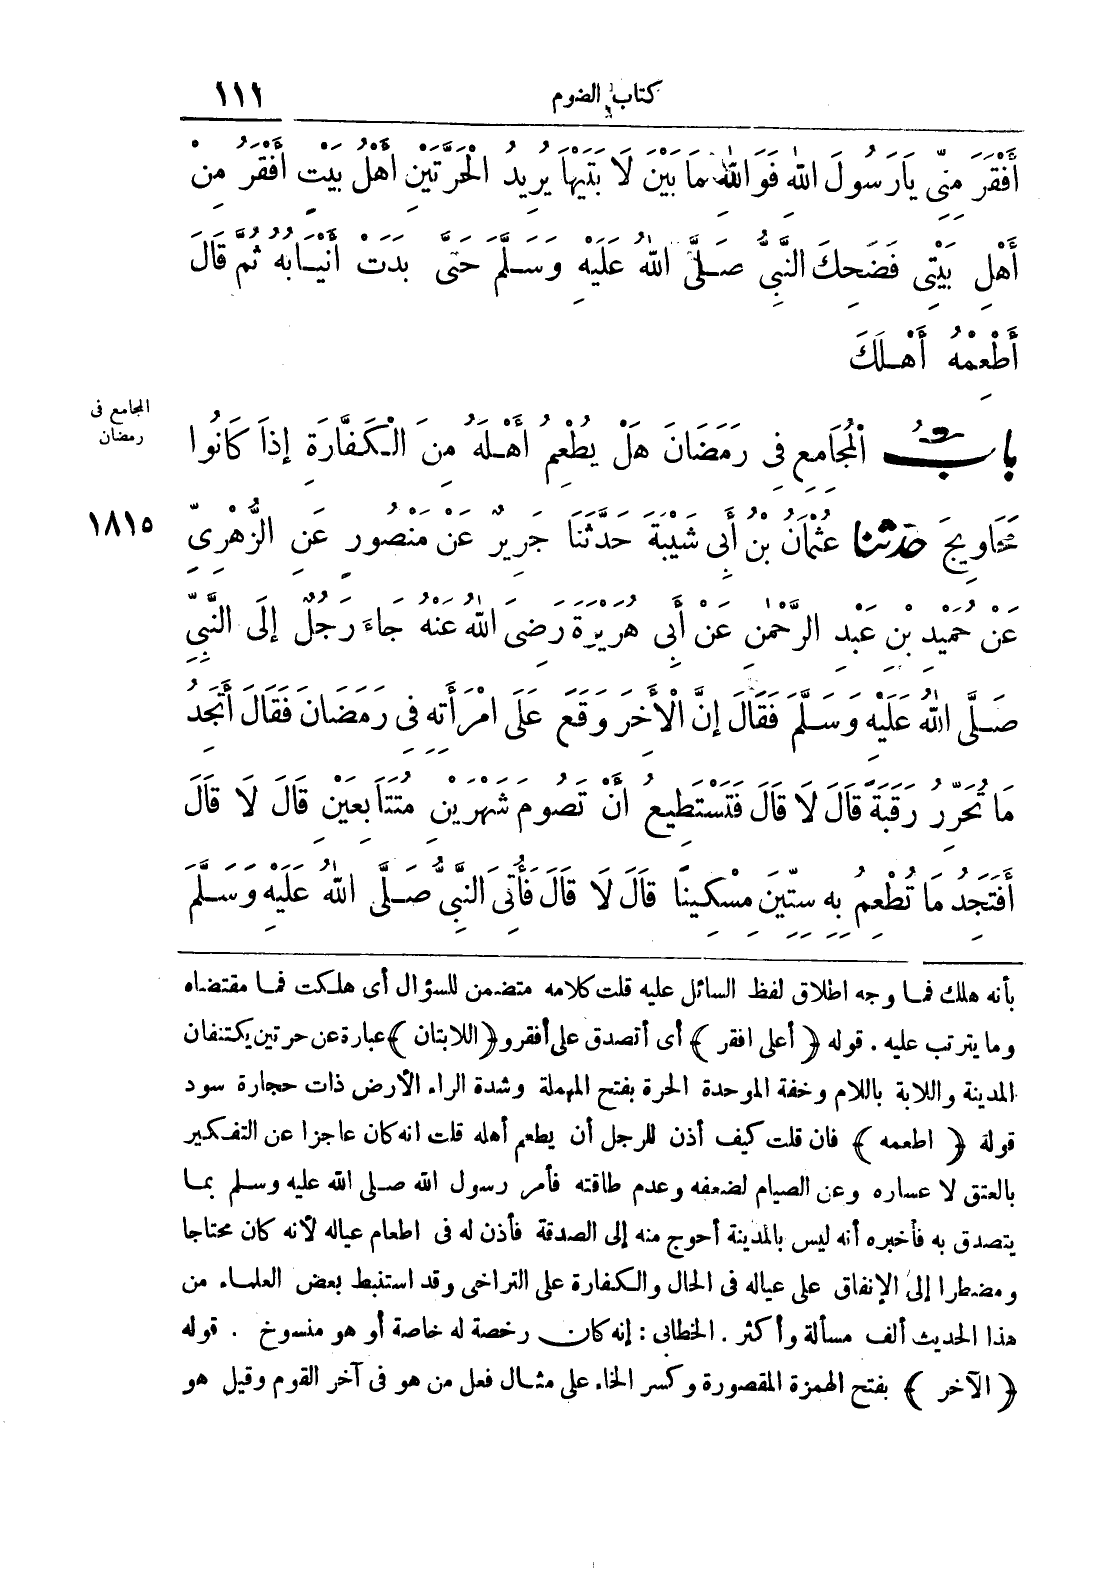 كتاب الصوم ١١١
أَفْقَرَ مِنِّي يَارَسُولَ اللهِ فَوَاللهِ مَا بَيْنَ لَابَتَيْهَا يُرِيدُ الْحَرَّتَيْنِ أَهْلُ بَيْتٍ أَفْقَرُ مِنْ
أَهْلِ بَيْتِي فَضَحِكَ النَّبِيُّ صَلَّى اللهُ عَلَيْهِ وَسَلَّمَ حَتَّى بَدَتْ أَنْيَابُهُ ثُمَّ قَالَ
أَطْعِمْهُ أَهْلَكَ
المجامع فى
رمضان
بابُ الْمُجَامِعِ فِي رَمَضَانَ هَلْ يُطْعِمُ أَهْلَهُ مِنَ الْكَفَّارَةِ إِذَا كَانُوا
١٨١٥
مَحَاوِيجَ حَدَّثَنَا عُثْمَانُ بْنُ أَبِي شَيْبَةَ حَدَّثَنَا جَرِيرٌ عَنْ مَنْصُورٍ عَنِ الزُّهْرِيِّ
عَنْ حُمَيْدِ بْنِ عَبْدِ الرَّحْمٰنِ عَنْ أَبِي هُرَيْرَةَ رَضِيَ اللهُ عَنْهُ جَاءَ رَجُلٌ إِلَى النَّبِيِّ
صَلَّى اللهُ عَلَيْهِ وَسَلَّمَ فَقَالَ إِنَّ الْأَخِرَ وَقَعَ عَلَى امْرَأَتِهِ فِي رَمَضَانَ فَقَالَ أَتَجِدُ
مَا تُحَرِّرُ رَقَبَةً قَالَ لَا قَالَ فَتَسْتَطِيعُ أَنْ تَصُومَ شَهْرَيْنِ مُتَتَابِعَيْنِ قَالَ لَا قَالَ
أَفَتَجِدُ مَا تُطْعِمُ بِهِ سِتِّينَ مِسْكِينًا قَالَ لَا قَالَ فَأُتِيَ النَّبِيُّ صَلَّى اللهُ عَلَيْهِ وَسَلَّمَ
بأنه هلك فما وجه اطلاق لفظ السائل عليه قلت كلامه متضمن للسؤال أى هلكت فما مقتضاه
وما يترتب عليه . قوله ﴿أعلى افقر﴾ أى أتصدق على أفقر و﴿اللابتان﴾ عبارة عن حرتين يكتنفان
المدينة واللابة باللام وخفة الموحدة الحرة بفتح المهملة وشدة الراء الأرض ذات حجارة سود
قوله ﴿اطعمه﴾ فان قلت كيف أذن للرجل أن يطعم أهله قلت انه كان عاجزا عن التفكير
بالعتق لا عساره وعن الصيام لضعفه وعدم طاقته فأمر رسول الله صلى الله عليه وسلم بما
يتصدق به فأخبره أنه ليس بالمدينة أحوج منه إلى الصدقة فأذن له فى اطعام عياله لأنه كان محتاجا
ومضطرا إلى الإنفاق على عياله فى الحال والكفارة على التراخى وقد استنبط بعض العلماء من
هذا الحديث ألف مسألة وأكثر . الخطابى : إنه كان رخصة له خاصة أو هو منسوخ . قوله
﴿الآخر﴾ بفتح الهمزة المقصورة وكسر الخاء على مثال فعل من هو فى آخر القوم وقيل هو